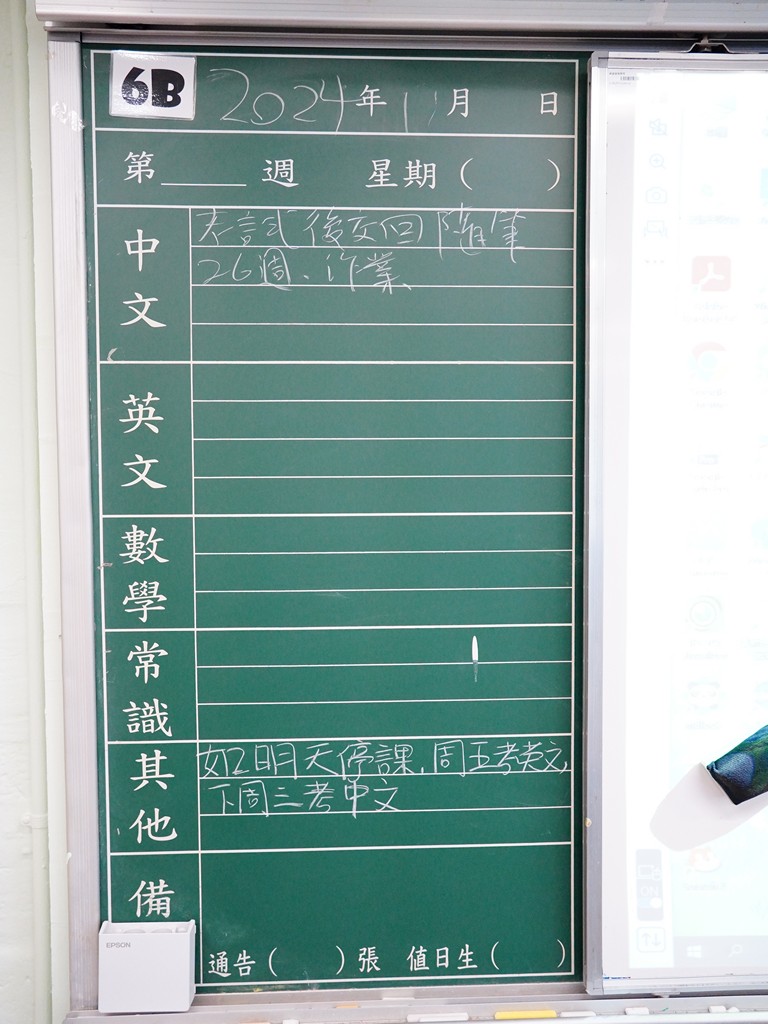 6B 2024年11月 日
第 週 星期( )
中文
考試後交回隨筆
26週、作業
英文
數學
常識
其他
如明天停課,周五考英文,
下周三考中文
備
EPSON
通告( )張 值日生( )